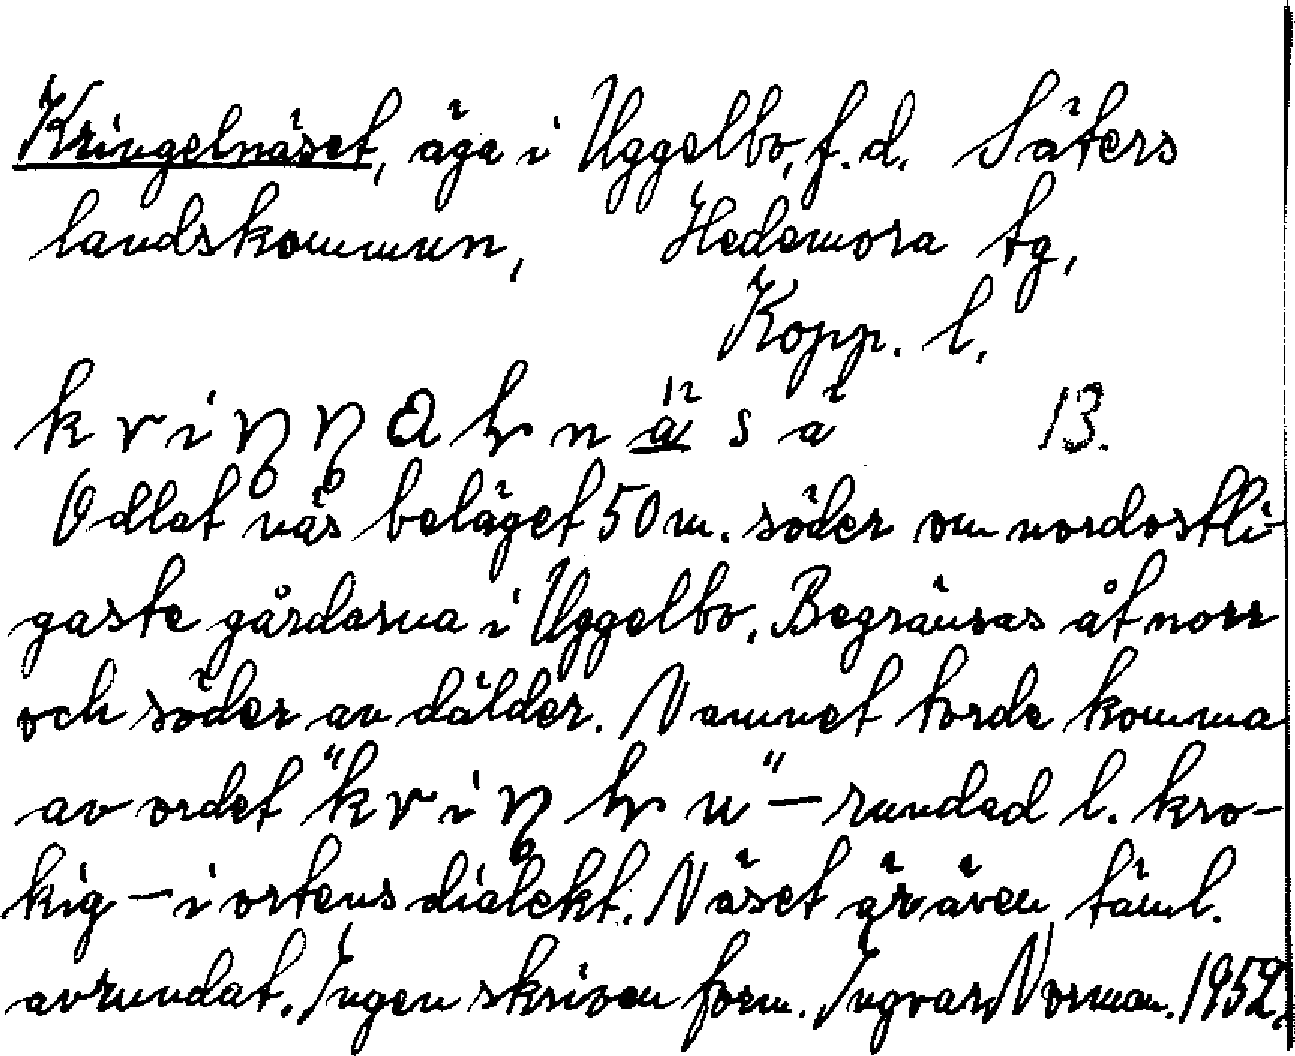 Kringelnäset, äga i Uggelbo, f.d. Säters
landskommun, Hedemora tg,
Kopp. l.
k r i ŋ ŋ a l n ä s a 13.
12
Odlat näs beläget 50 m. söder om nordostli-
gaste gårdarna i Uggelbo. Begränsas åt norr
och söder av dälder. Namnet torde komma
av ordet "k r i ŋ l u" – rundad l. kro-
kig – i ortens dialekt. Näset är även täml.
avrundat. Ingen skriven form. Ingvar Norman. 1952.